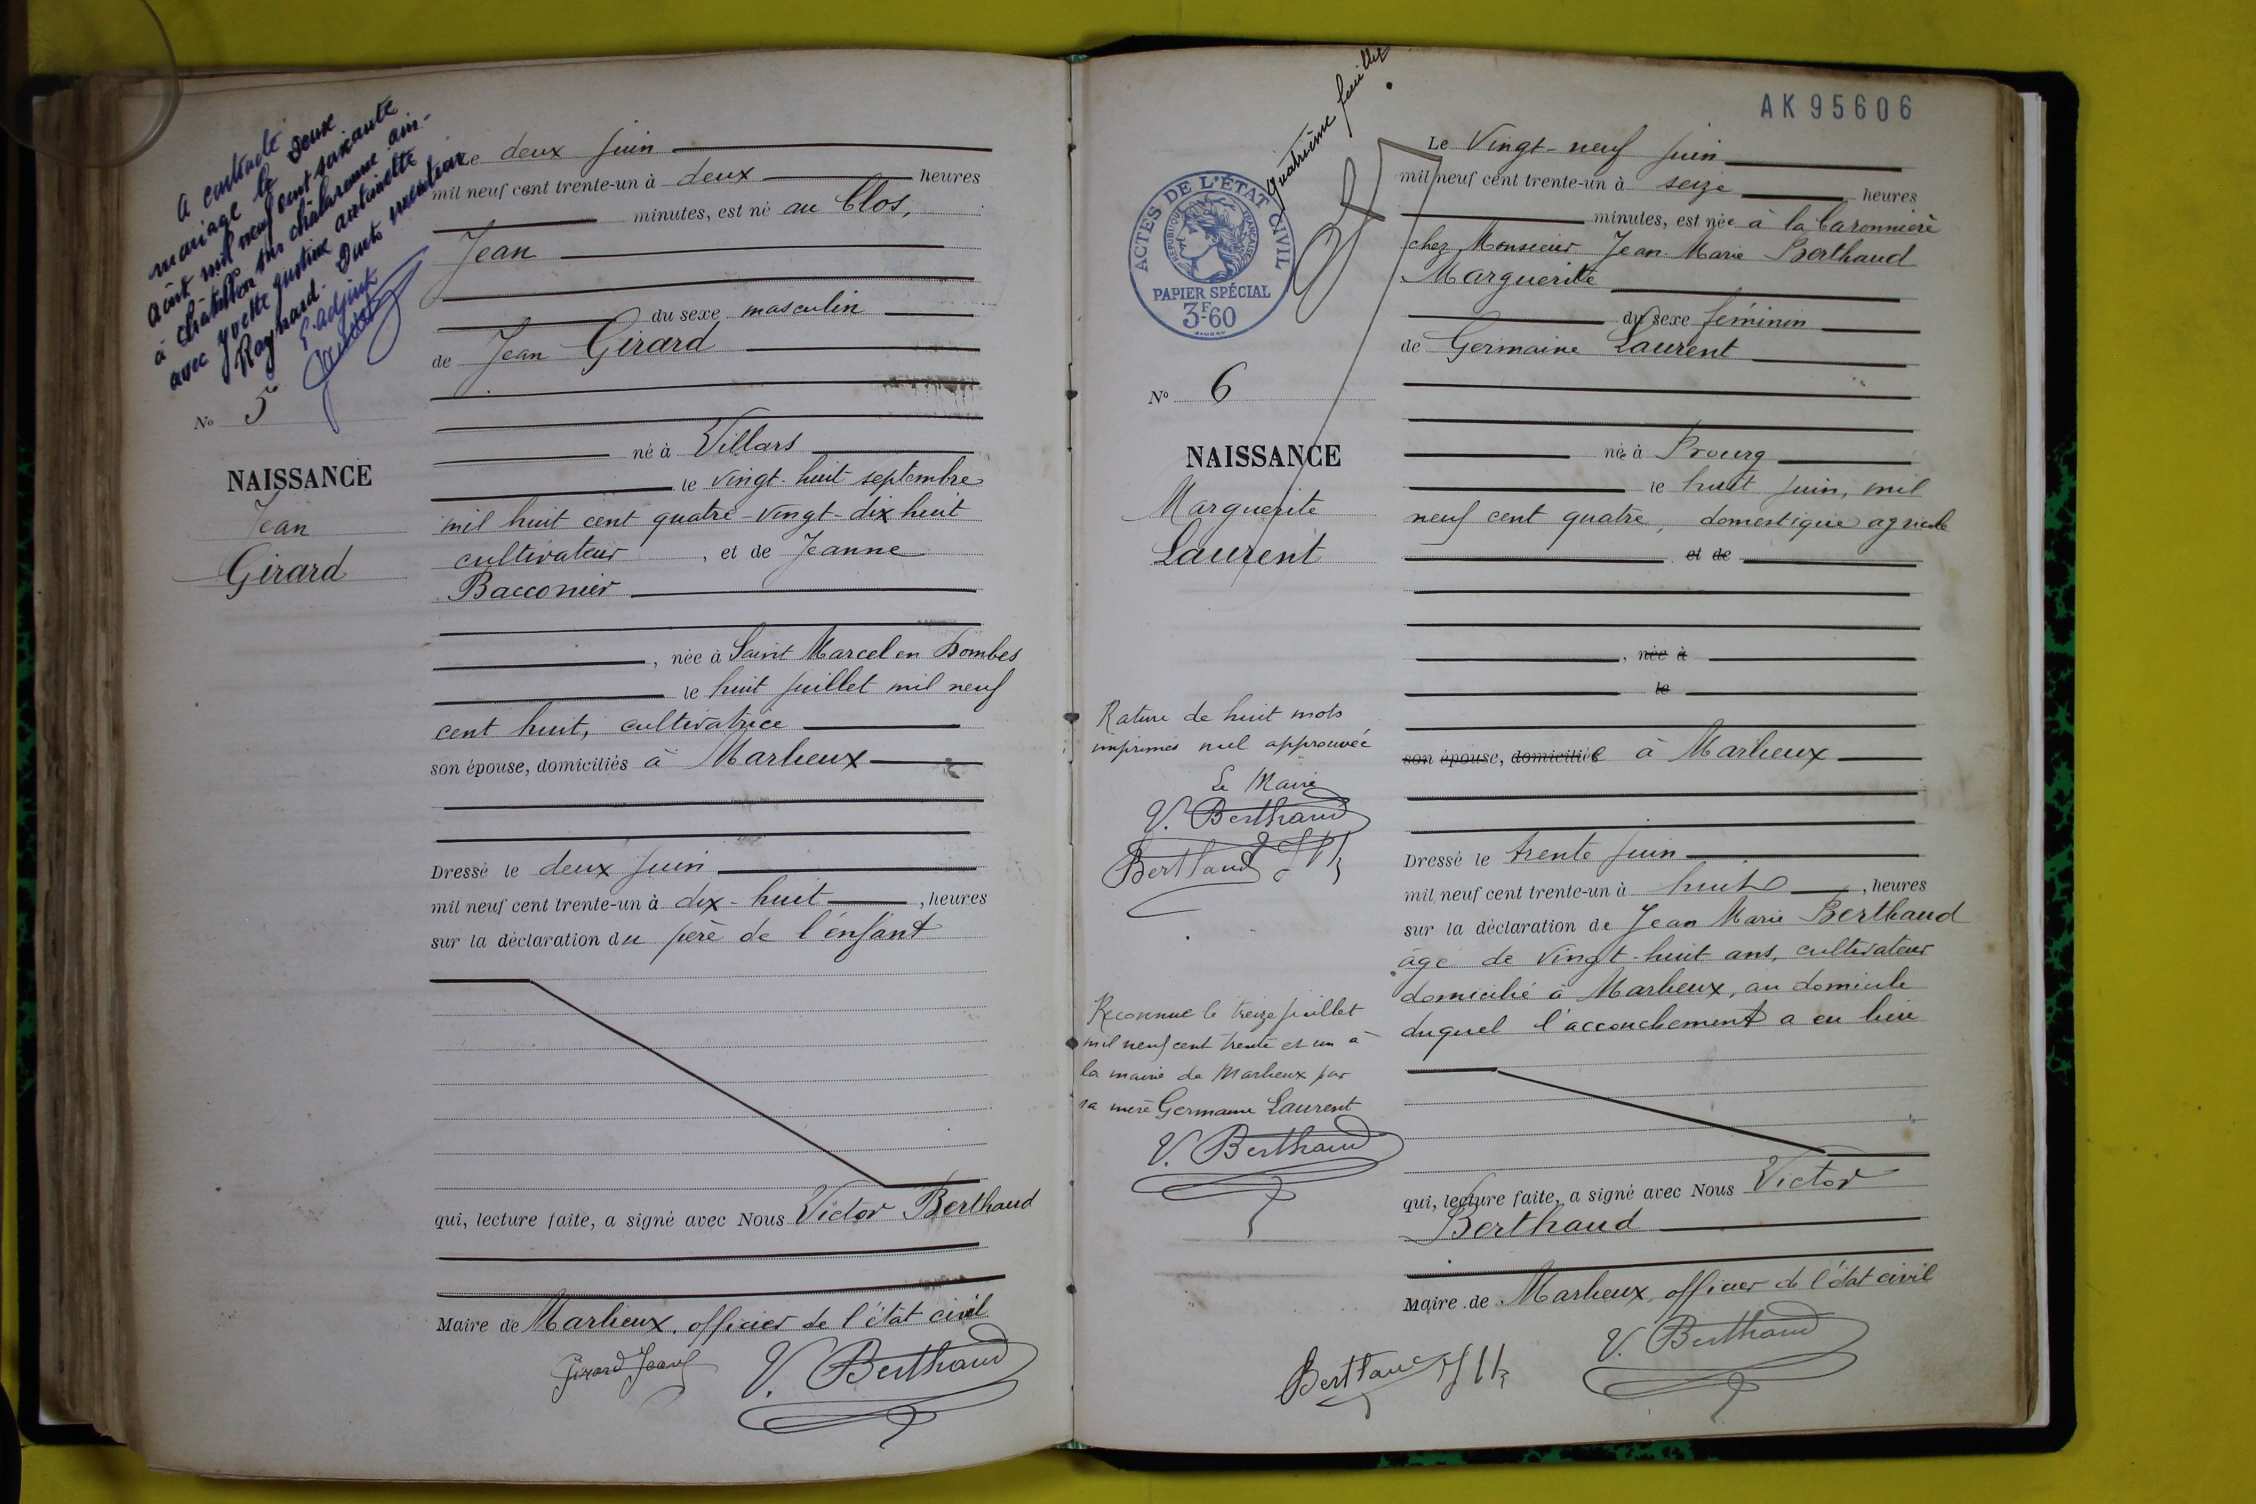 A contracté
mariage le deux
août mil neuf cent soixante
à Châtillon sur Chalaronne Ain-
avec Yvette Justine Antoinette
Raynard. Dont mention
L'adjoint
N° 5
NAISSANCE
Jean
Girard
Le deux juin
mil neuf cent trente-un à deux heures
minutes, est né au Clos,
Jean
du sexe masculin
de Jean Girard
né à Villars
le vingt-huit septembre
mil huit cent quatre-vingt-dix huit
cultivateur, et de Jeanne
Bacconier
, née à Saint Marcel en Dombes
le huit juillet mil neuf
cent huit, cultivatrice
son épouse, domiciliés à Marlieux
Dressé le deux juin
mil neuf cent trente-un à dix-huit, heures
sur la déclaration du père de l'enfant
qui, lecture faite, a signé avec Nous Victor Berthaud
Maire de Marlieux, officier de l'état civil
Girard Jean
V. Berthaud
Quatrième feuillet
AK95606
ACTES DE L'ÉTAT CIVIL
RÉPUBLIQUE FRANÇAISE
PAPIER SPÉCIAL
3F60
N° 6
NAISSANCE
Marguerite
Laurent
Rature de huit mots
imprimés nul approuvée
Le Maire
V. Berthaud
Berthaud J M
Reconnue le treize juillet
mil neuf cent trente et un à
la mairie de Marlieux par
sa mère Germaine Laurent
V. Berthaud
Le Vingt-neuf juin
mil neuf cent trente-un à seize heures
minutes, est née à la Caronnière
chez Monsieur Jean Marie Berthaud
Marguerite
du sexe féminin
de Germaine Laurent
né à
le huit juin, mil
neuf cent quatre, domestique agricole
et de
, née à
le
son épouse, domiciliée à Marlieux
Dressé le trente juin
mil neuf cent trente-un à huit, heures
sur la déclaration de Jean Marie Berthaud
âgé de vingt-huit ans, cultivateur
domicilié à Marlieux, au domicile
duquel l'accouchement a eu lieu
qui, lecture faite, a signé avec Nous Victor
Berthaud
Maire de Marlieux, officier de l'état civil
Berthaud J M
V. Berthaud